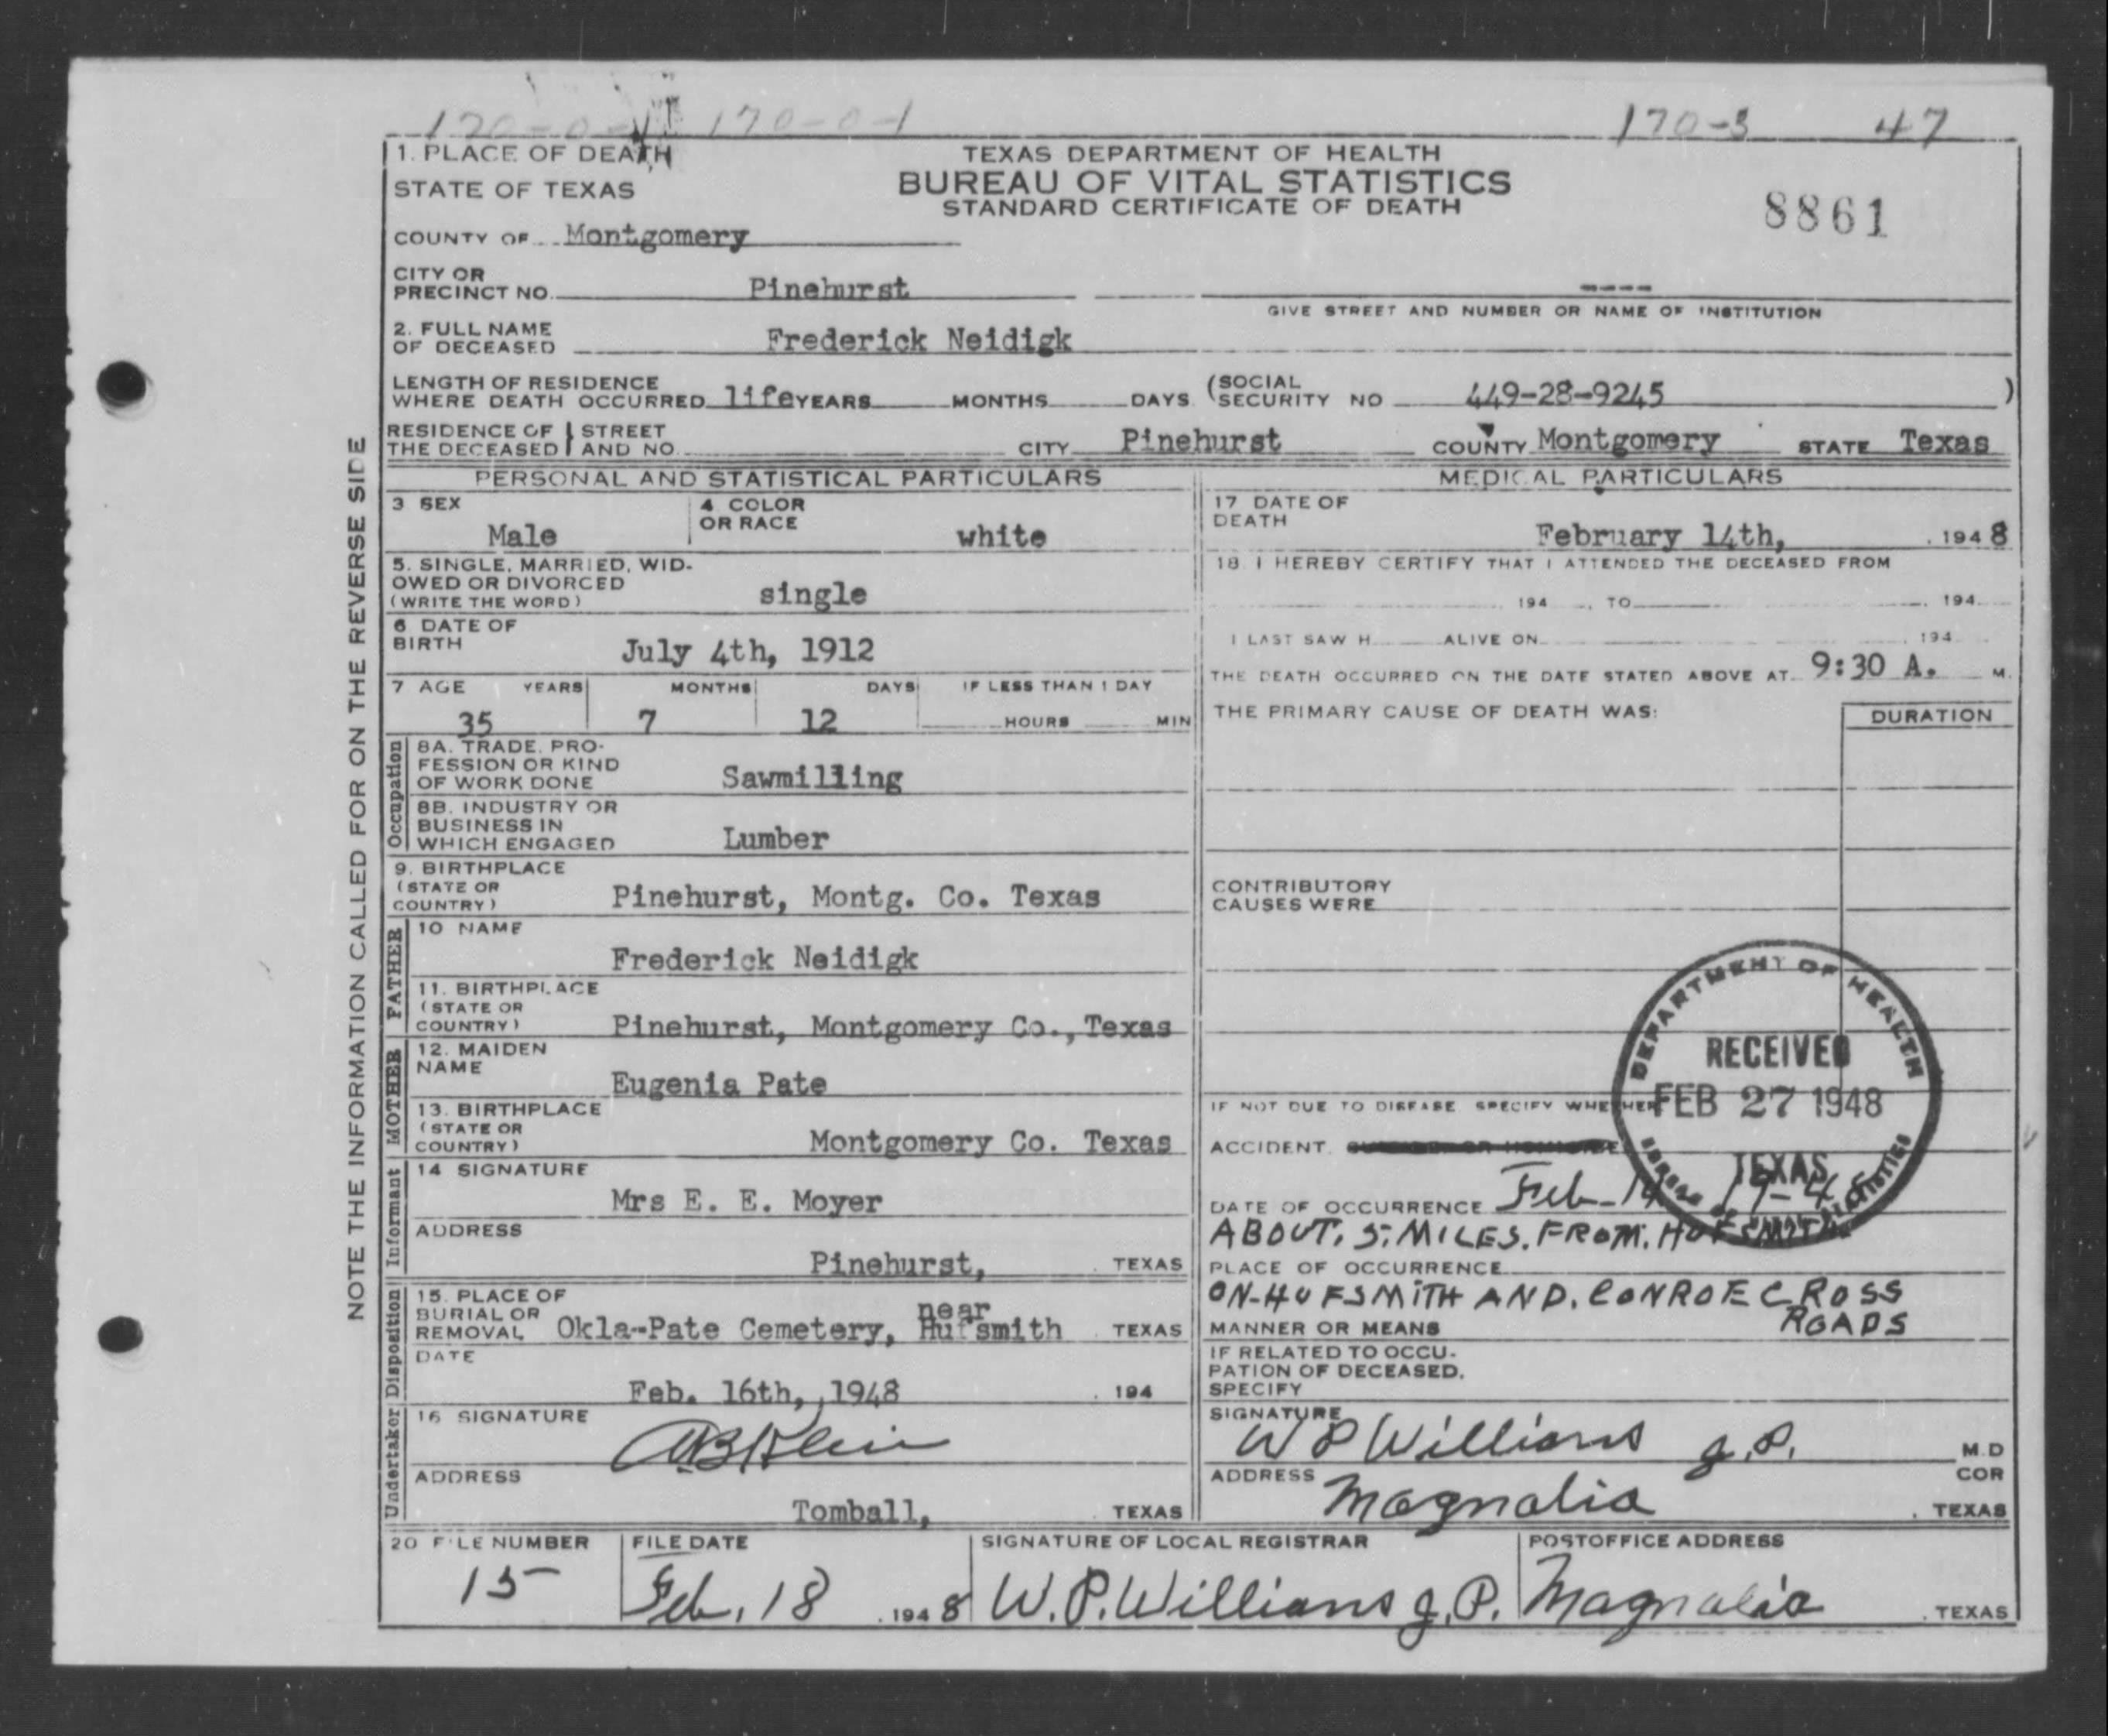 170-0-1 170-0-1 170-3 47
1. PLACE OF DEATH
STATE OF TEXAS
TEXAS DEPARTMENT OF HEALTH
BUREAU OF VITAL STATISTICS
STANDARD CERTIFICATE OF DEATH
8861
COUNTY OF Montgomery
CITY OR PRECINCT NO. Pinehurst ----
GIVE STREET AND NUMBER OR NAME OF INSTITUTION
2. FULL NAME OF DECEASED Frederick Neidigk
LENGTH OF RESIDENCE WHERE DEATH OCCURRED life YEARS MONTHS DAYS (SOCIAL SECURITY NO 449-28-9245 )
RESIDENCE OF THE DECEASED } STREET AND NO. CITY Pinehurst COUNTY Montgomery STATE Texas
PERSONAL AND STATISTICAL PARTICULARS
3 SEX Male
4 COLOR OR RACE white
5. SINGLE, MARRIED, WIDOWED OR DIVORCED (WRITE THE WORD) single
6 DATE OF BIRTH July 4th, 1912
7 AGE YEARS MONTHS DAYS IF LESS THAN 1 DAY
35 7 12 HOURS MIN
Occupation
8A. TRADE, PROFESSION OR KIND OF WORK DONE Sawmilling
8B. INDUSTRY OR BUSINESS IN WHICH ENGAGED Lumber
9. BIRTHPLACE (STATE OR COUNTRY) Pinehurst, Montg. Co. Texas
FATHER
10 NAME Frederick Neidigk
11. BIRTHPLACE (STATE OR COUNTRY) Pinehurst, Montgomery Co., Texas
MOTHER
12. MAIDEN NAME Eugenia Pate
13. BIRTHPLACE (STATE OR COUNTRY) Montgomery Co. Texas
Informant
14 SIGNATURE Mrs E. E. Moyer
ADDRESS Pinehurst, TEXAS
Disposition
15. PLACE OF BURIAL OR REMOVAL Okla-Pate Cemetery, near Hufsmith TEXAS
DATE Feb. 16th, 1948 , 194
Undertaker
16 SIGNATURE AB Klein
ADDRESS Tomball, TEXAS
MEDICAL PARTICULARS
17 DATE OF DEATH February 14th, , 1948
18. I HEREBY CERTIFY THAT I ATTENDED THE DECEASED FROM
, 194 , TO , 194
I LAST SAW H ALIVE ON , 194
THE DEATH OCCURRED ON THE DATE STATED ABOVE AT 9:30 A. M.
THE PRIMARY CAUSE OF DEATH WAS: DURATION
CONTRIBUTORY CAUSES WERE
IF NOT DUE TO DISEASE SPECIFY WHETHER
ACCIDENT,
DATE OF OCCURRENCE Feb-14
ABOUT. 5. MILES. FROM. HUFSMITH
PLACE OF OCCURRENCE
ON-HUFSMITH AND. CONROE CROSS
ROADS
MANNER OR MEANS
IF RELATED TO OCCUPATION OF DECEASED, SPECIFY
SIGNATURE W P Williams J.P. M.D
ADDRESS Magnolia COR
, TEXAS
DEPARTMENT OF HEALTH
RECEIVED
FEB 27 1948
TEXAS
BUREAU OF VITAL STATISTICS
20 FILE NUMBER FILE DATE SIGNATURE OF LOCAL REGISTRAR POSTOFFICE ADDRESS
15 Feb. 18 , 1948 W. P. Williams J. P. Magnolia , TEXAS
NOTE THE INFORMATION CALLED FOR ON THE REVERSE SIDE